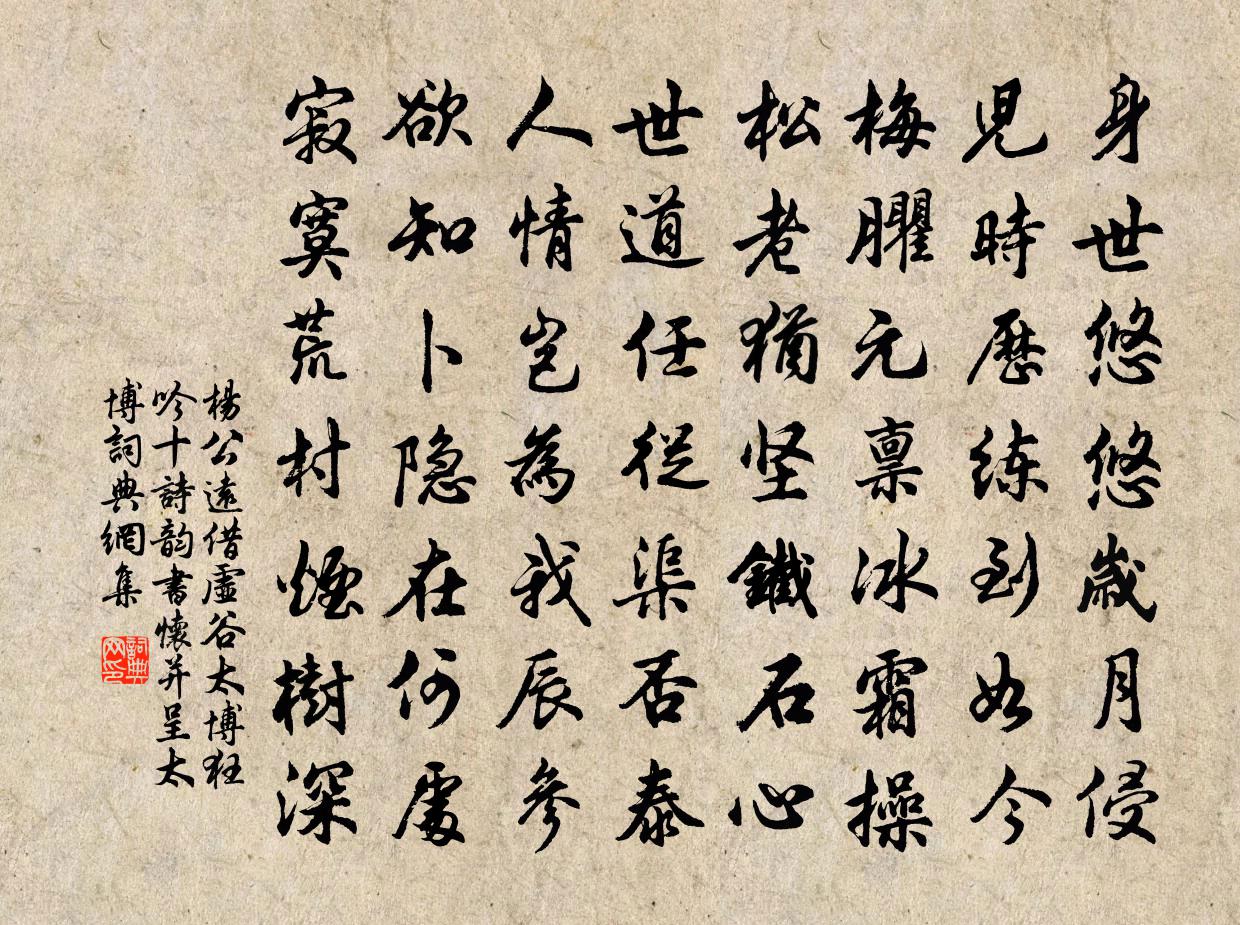 身世悠悠歲月侵
兒時歷练到如今
梅臞元禀冰霜操
松老猶坚鐵石心
世道任從渠否泰
人情豈為我辰參
欲知卜隐在何處
寂寞荒村煙樹深
楊公遠借虛谷太博狂
吟十詩韵書懷并呈太
博詞典網集
詞典
网印